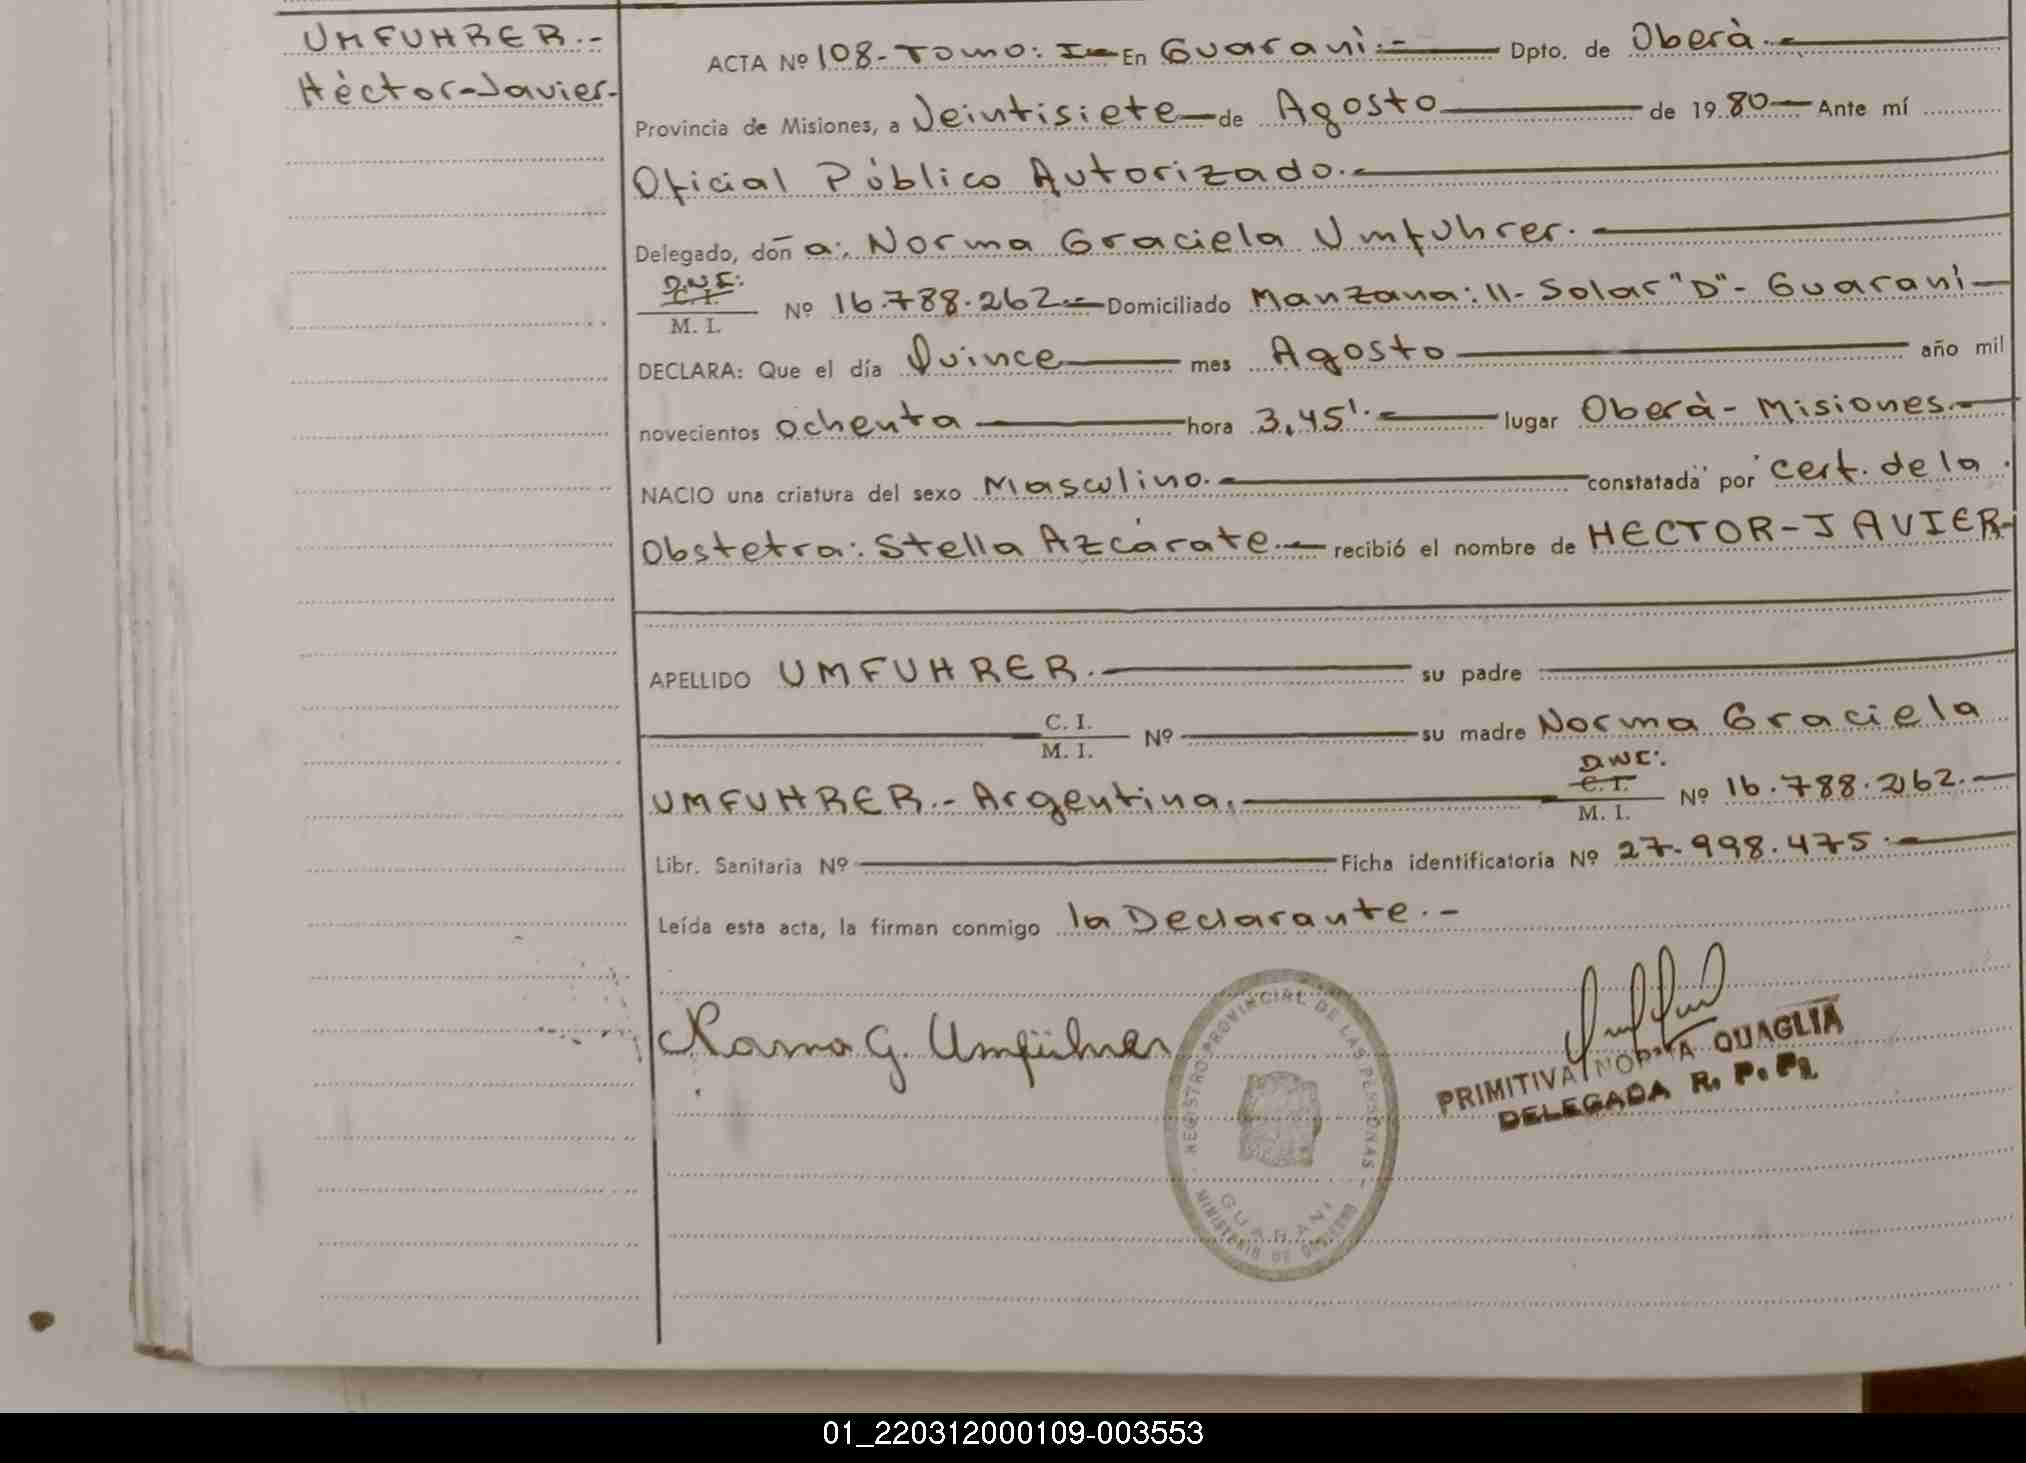 UMFUHRER.-
Hèctor-Javier-
ACTA Nº 108-Tomo: I- En Guaranì.- Dpto. de Oberà.-
Provincia de Misiones, a Veintisiete de Agosto de 1980 Ante mí
Oficial Público Autorizado.-
Delegado, doñ a: Norma Graciela Umfuhrer.
D.N.I.
C. I.
M. I.
Nº 16.788.262.- Domiciliado Manzana: 11- Solar "D"- Guaranì
DECLARA: Que el día Quince mes Agosto año mil
novecientos ochenta hora 3,45'.- lugar Oberà- Misiones.-
NACIO una criatura del sexo Masculino.- constatada por cert. de la
Obstetra: Stella Azcárate.- recibió el nombre de HECTOR-JAVIER-
APELLIDO UMFUHRER.- su padre
C. I.
M. I.
Nº su madre Norma Graciela
D.N.I.
UMFUHRER.- Argentina.
C. I.
M. I.
Nº 16.788.262.-
Libr. Sanitaria Nº Ficha identificatoria Nº 27.998.475.-
Leída esta acta, la firman conmigo la Declarante.-
Norma G. Umfühner
REGISTRO PROVINCIAL DE LAS PERSONAS -
GUARANI
MINISTERIO DE GOBIERNO
PRIMITIVA NORMA QUAGLIA
DELEGADA R. P. P.
01_220312000109-003553